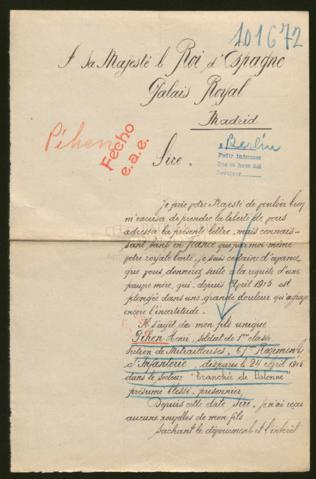 101672
A sa Majesté le Roi d'Espagne
Palais Royal
Madrid
Pihen
Fecho
e.a.e.
Berlin
Pedir informes
Sire.
Je prie votre Majesté de vouloir bien
m'excuser de prendre la liberté de vous
adresser la présente lettre, mais connais-
sant tant en France que par moi même
votre royale bonté, je suis certaine d'avance
que vous donnerez suite à la requête d'une
pauvre mère, qui, depuis Avril 1915 est
plongée dans une grande douleur qu'apaye
encore l'incertitude.
Il s'agit de mon fils unique
Pihen soldat de 1ère classe
Section de Mitrailleuses, Régiment
d'Infanterie, disparu le 24 Avril 1915
dans le secteur "Tranchée de Calonne
présumé blessé, prisonnier
Depuis cette date Sire, je n'ai reçu
aucune nouvelles de mon fils
Sachant le dévouement et l'intérêt